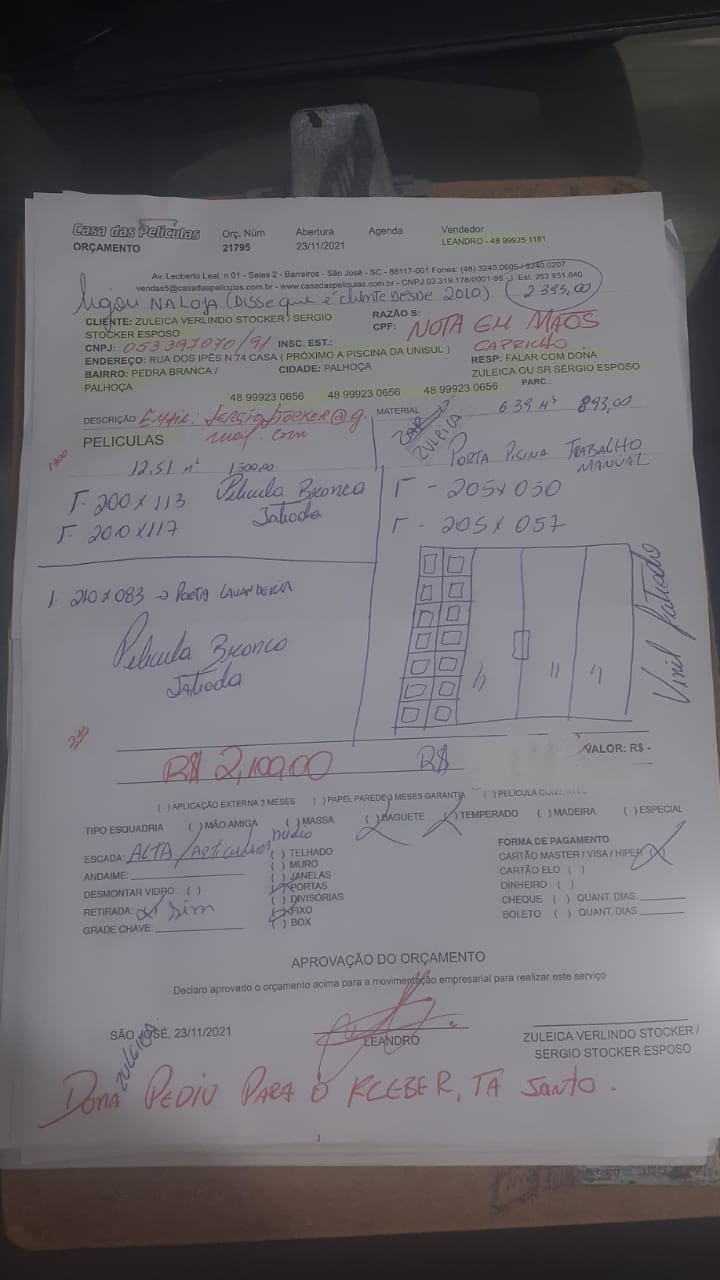 Casa das Películas
ORÇAMENTO
Orç. Núm
21795
Abertura
23/11/2021
Agenda
Vendedor
LEANDRO - 48 99925 1181
Av. Leoberto Leal, n 01 - Salas 2 - Barreiros - São José - SC - 88117-001 Fones: (48) 3240.0605 / 3240.0207
vendas5@casadaspeliculas.com.br - www.casadaspeliculas.com.br - CNPJ 03.319.178/0001-98 - I. Est. 253.951.640
Ligou NA LOJA (Disse que é cliente desde 2010)
2 393,00
CLIENTE: ZULEICA VERLINDO STOCKER / SERGIO
STOCKER ESPOSO
RAZÃO S:
CPF: NOTA EM MÃOS
CAPRICHO
CNPJ: 053397070/91 INSC. EST.:
ENDEREÇO: RUA DOS IPÊS N 74 CASA ( PRÓXIMO A PISCINA DA UNISUL )
BAIRRO: PEDRA BRANCA /
PALHOÇA
CIDADE: PALHOÇA
RESP: FALAR COM DONA
ZULEICA OU SR SÉRGIO ESPOSO
PARC.:
48 99923 0656 48 99923 0656 48 99923 0656
DESCRIÇÃO EMAIL: SergioStocker@g
mail.com
MATERIAL
6 39 M² 893,00
PELICULAS
ZULEICA
1300
12,51 m² 1500,00
PORTA PISINA TRABALHO
MANUAL
200 X 113 Película Bronca
Jatiada
200 X 117
205 X 050
205 X 057
1. 210 X 083 → PORTA LAVANDERIA
Película Bronco
Jatiada
Vinil Jatiado
R$ 2,100,00
R$
VALOR: R$ -
( ) APLICAÇÃO EXTERNA 3 MESES ( ) PAPEL PAREDE 3 MESES GARANTIA ( ) PELÍCULA
TIPO ESQUADRIA ( ) MÃO AMIGA ( ) MASSA ( ) BAGUETE ( ) TEMPERADO ( ) MADEIRA ( ) ESPECIAL
ESCADA: ALTA / Articulam médio
ANDAIME:
DESMONTAR VIDRO: ( )
RETIRADA: X Sim
GRADE CHAVE:
( ) TELHADO
( ) MURO
( ) JANELAS
(X) PORTAS
( ) DIVISÓRIAS
(X) FIXO
( ) BOX
FORMA DE PAGAMENTO
CARTÃO MASTER / VISA / HIPER (X)
CARTÃO ELO ( )
DINHEIRO ( )
CHEQUE ( ) QUANT. DIAS
BOLETO ( ) QUANT. DIAS
APROVAÇÃO DO ORÇAMENTO
Declaro aprovado o orçamento acima para a movimentação empresarial para realizar este serviço
SÃO JOSÉ, 23/11/2021
LEANDRO
ZULEICA VERLINDO STOCKER /
SERGIO STOCKER ESPOSO
ZULEICA
DONA PEDIU PARA O KLEBER, TA SANTO.